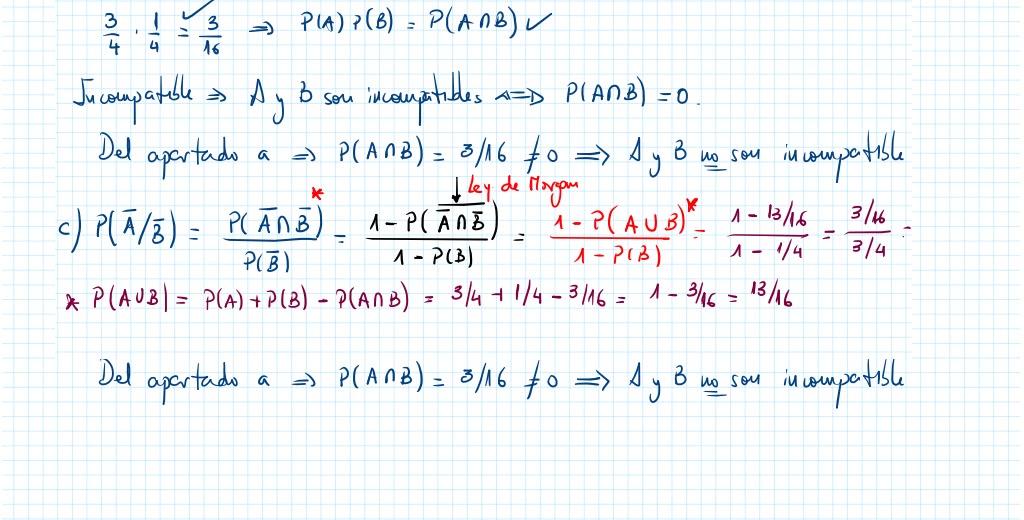 3/4 · 1/4 = 3/16 ✓ ⇒ P(A) P(B) = P(A∩B) ✓
Incompatible ⇒ A y B son incompatibles ⇐⇒ P(A∩B) = 0.
Del apartado a ⇒ P(A∩B) = 3/16 ≠ 0 ⇒ A y B no son incompatible
↓ Ley de Morgan
c) P(A̅/B̅) = P(A̅∩B̅)*/P(B̅) = 1 - P(A̅∩B̅)̅/1 - P(B) = 1 - P(A∪B)*/1 - P(B) = 1 - 13/16/1 - 1/4 = 3/16/3/4 =
* P(A∪B) = P(A) + P(B) - P(A∩B) = 3/4 + 1/4 - 3/16 = 1 - 3/16 = 13/16
Del apartado a ⇒ P(A∩B) = 3/16 ≠ 0 ⇒ A y B no son incompatible